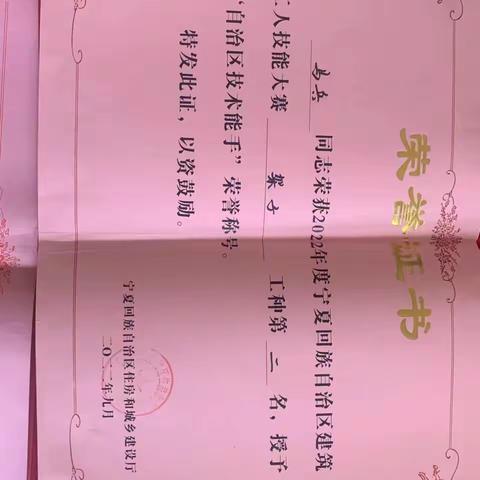 荣誉证书
马兵 同志荣获2022年度宁夏回族自治区建筑
工人技能大赛 架子 工种第 二 名，授予
“自治区技术能手”荣誉称号。
特发此证，以资鼓励。
宁夏回族自治区住房和城乡建设厅
二〇二二年九月